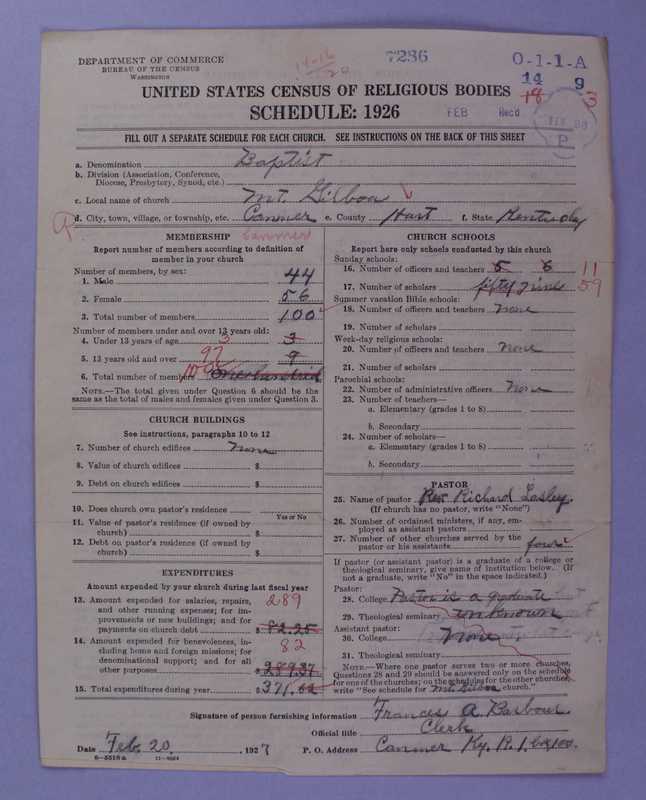 DEPARTMENT OF COMMERCE
BUREAU OF THE CENSUS
WASHINGTON
14-16
28
7236
O-1-1-A
14 9
18 3
UNITED STATES CENSUS OF RELIGIOUS BODIES
SCHEDULE: 1926
FEB Recd
FEB 26
P
FILL OUT A SEPARATE SCHEDULE FOR EACH CHURCH. SEE INSTRUCTIONS ON THE BACK OF THIS SHEET
a. Denomination Baptist
b. Division (Association, Conference,
Diocese, Presbytery, Synod, etc.)
c. Local name of church Mt. Gilboa
d. City, town, village, or township, etc. Canmer e. County Hart f. State Kentucky
R. Canmer
MEMBERSHIP
Report number of members according to definition of
member in your church
Number of members, by sex:
1. Male 44
2. Female 56
3. Total number of members 100
Number of members under and over 13 years old:
4. Under 13 years of age 3 3
5. 13 years old and over 97 9
6. Total number of members 100 one hundred
NOTE.—The total given under Question 6 should be the
same as the total of males and females given under Question 3.
CHURCH BUILDINGS
See instructions, paragraphs 10 to 12
7. Number of church edifices none
8. Value of church edifices $
9. Debt on church edifices $
10. Does church own pastor's residence
Yes or No
11. Value of pastor's residence (if owned by
church) $
12. Debt on pastor's residence (if owned by
church) $
EXPENDITURES
Amount expended by your church during last fiscal year
13. Amount expended for salaries, repairs,
and other running expenses; for im-
provements or new buildings; and for
payments on church debt 289 $ 82.25
14. Amount expended for benevolences, in-
cluding home and foreign missions; for
denominational support; and for all
other purposes 82 $ 289.37
15. Total expenditures during year $ 371.62
CHURCH SCHOOLS
Report here only schools conducted by this church
Sunday schools:
16. Number of officers and teachers 5 6 11
17. Number of scholars fifty nine 59
Summer vacation Bible schools:
18. Number of officers and teachers none
19. Number of scholars
Week-day religious schools:
20. Number of officers and teachers none
21. Number of scholars
Parochial schools:
22. Number of administrative officers none
23. Number of teachers—
a. Elementary (grades 1 to 8)
b. Secondary
24. Number of scholars—
a. Elementary (grades 1 to 8)
b. Secondary
PASTOR
25. Name of pastor Rev. Richard Lasley.
(If church has no pastor, write "None")
26. Number of ordained ministers, if any, em-
ployed as assistant pastors
27. Number of other churches served by the
pastor or his assistants four
If pastor (or assistant pastor) is a graduate of a college or
theological seminary, give name of institution below. (If
not a graduate, write "No" in the space indicated.)
Pastor:
28. College Pastor is a graduate
29. Theological seminary unknown
Assistant pastor:
30. College None
31. Theological seminary
NOTE.—Where one pastor serves two or more churches,
Questions 28 and 29 should be answered only on the schedule
for one of the churches; on the schedules for the other churches,
write "See schedule for Mt. Gilboa church."
Signature of person furnishing information Frances A. Barbour
Official title Clerk
Date Feb. 20, 1927 P. O. Address Canmer Ky. R. 1, box 100.
8—5519a 11—9664